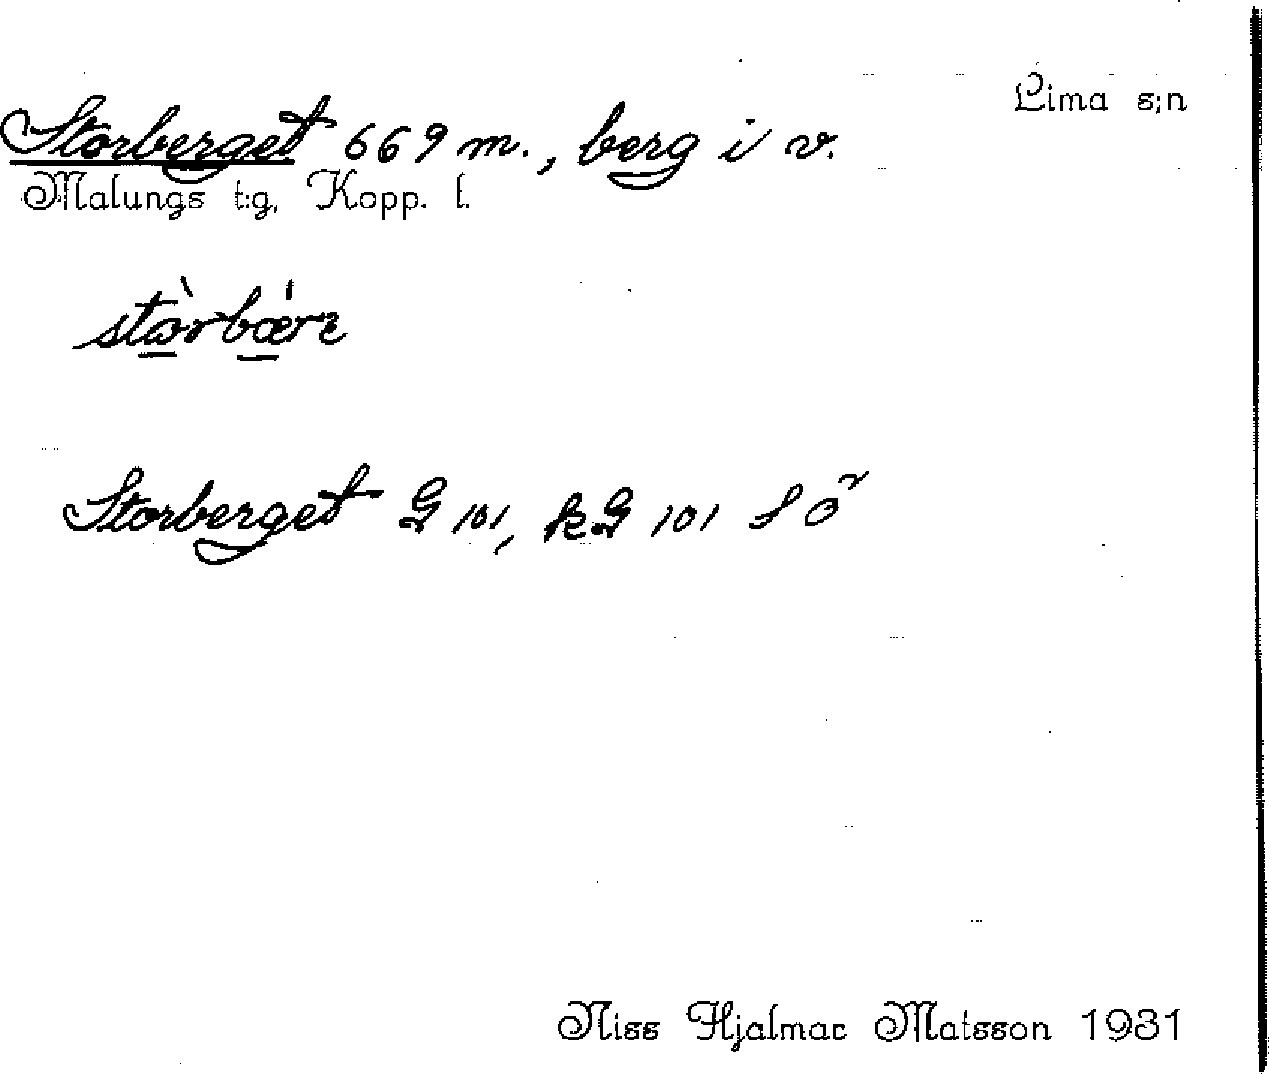 Lima s:n
Storberget 669 m., berg i v.
Malungs t:g, Kopp. l.
stòrbǽre
Storberget G 101, kG 101 S Ö
Niss Hjalmar Matsson 1931